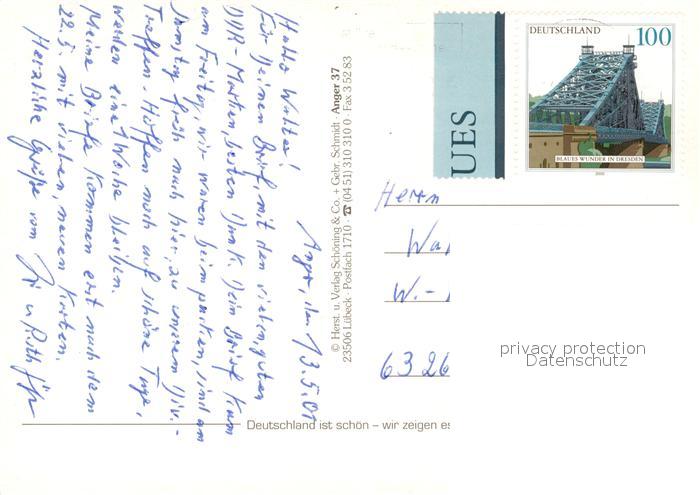 Anger, den 13.5.01
Hallo Walter!
Für Deinen Brief, mit den vielen guten
DDR-Marken, besten Dank. Dein Brief kam
am Freitag, wir waren beim packen, sind am
Samstag früh nach hier, zu unserem Div.-
Treffen. Hoffen noch auf schöne Tage,
werden eine Woche bleiben.
Meine Briefe kommen erst nach dem
22.5 mit vielen, neuen Karten.
Herzliche Grüße vom
u. Ruth
© Herst. u. Verlag Schöning & Co. + Gebr. Schmidt · Anger 37
23506 Lübeck · Postfach 1710 · ☎ (04 51) 310 310 0 · Fax 3 52 83
UES
DEUTSCHLAND 100
BLAUES WUNDER IN DRESDEN
2000
Herrn
Wa
W.-
6326
privacy protection
Datenschutz
Deutschland ist schön – wir zeigen es